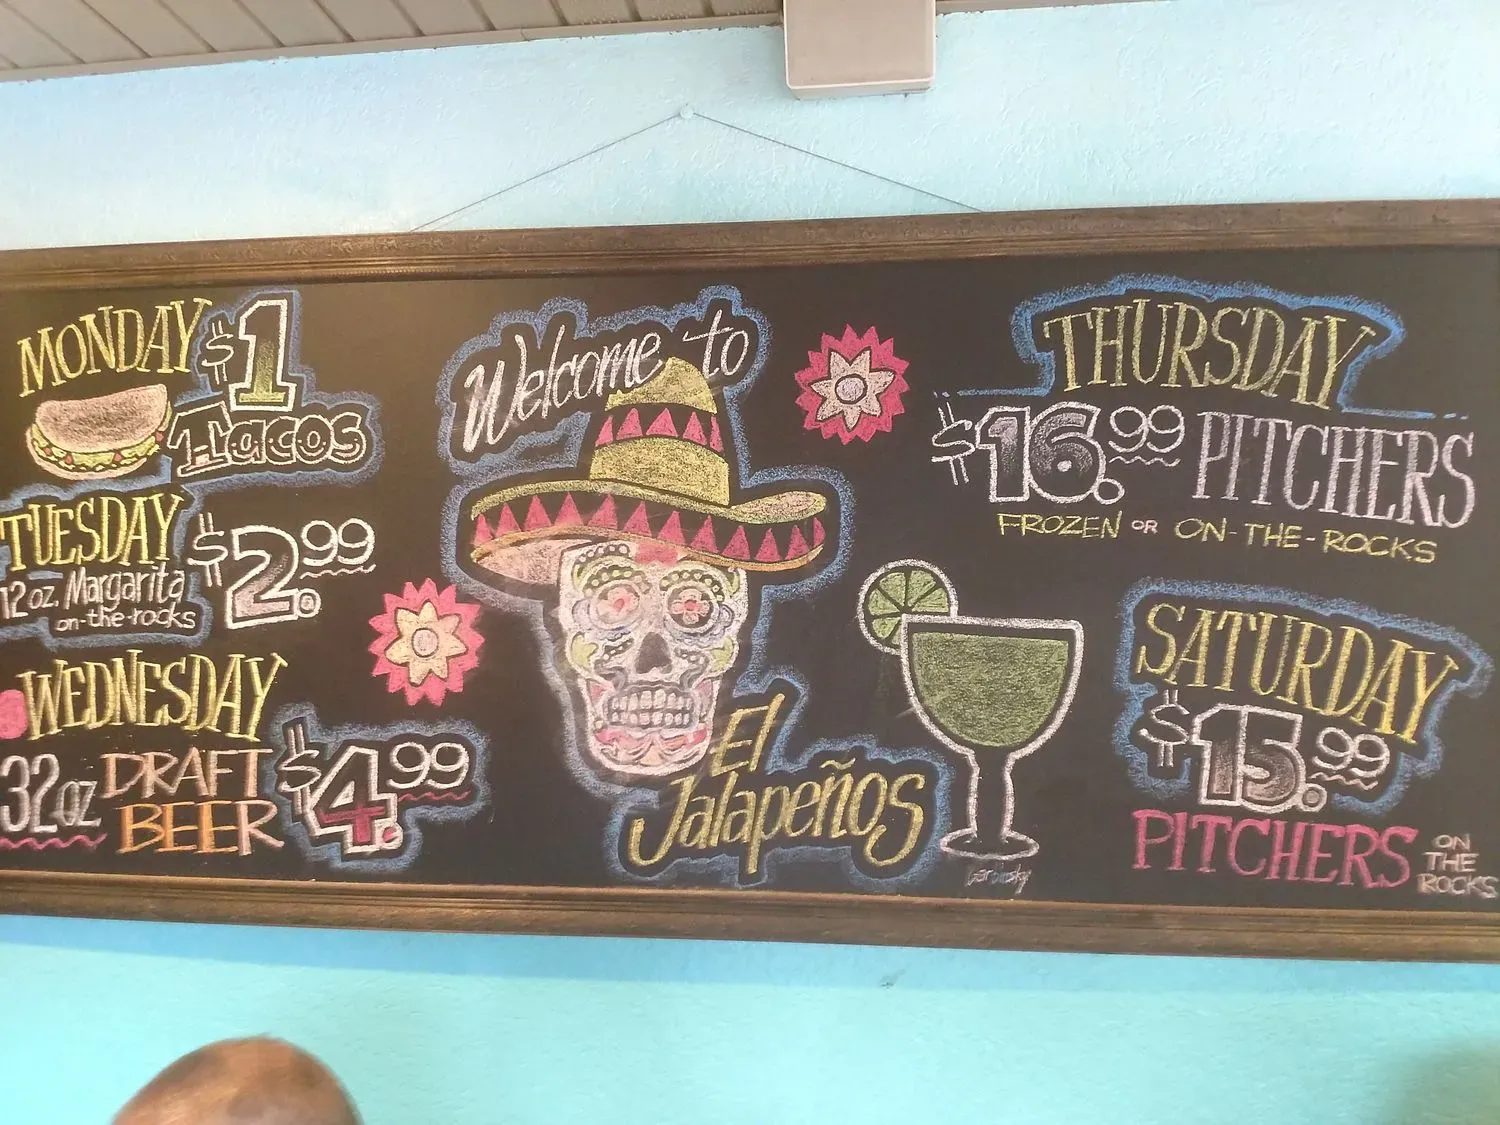 MONDAY $1
Tacos
TUESDAY
12 oz. Margarita
on-the-rocks
$2.99
WEDNESDAY
32oz DRAFT
BEER
$4.99
Welcome to
El
Jalapeños
THURSDAY
$16.99 PITCHERS
FROZEN OR ON-THE-ROCKS
SATURDAY
$15.99
PITCHERS
ON
THE
ROCKS